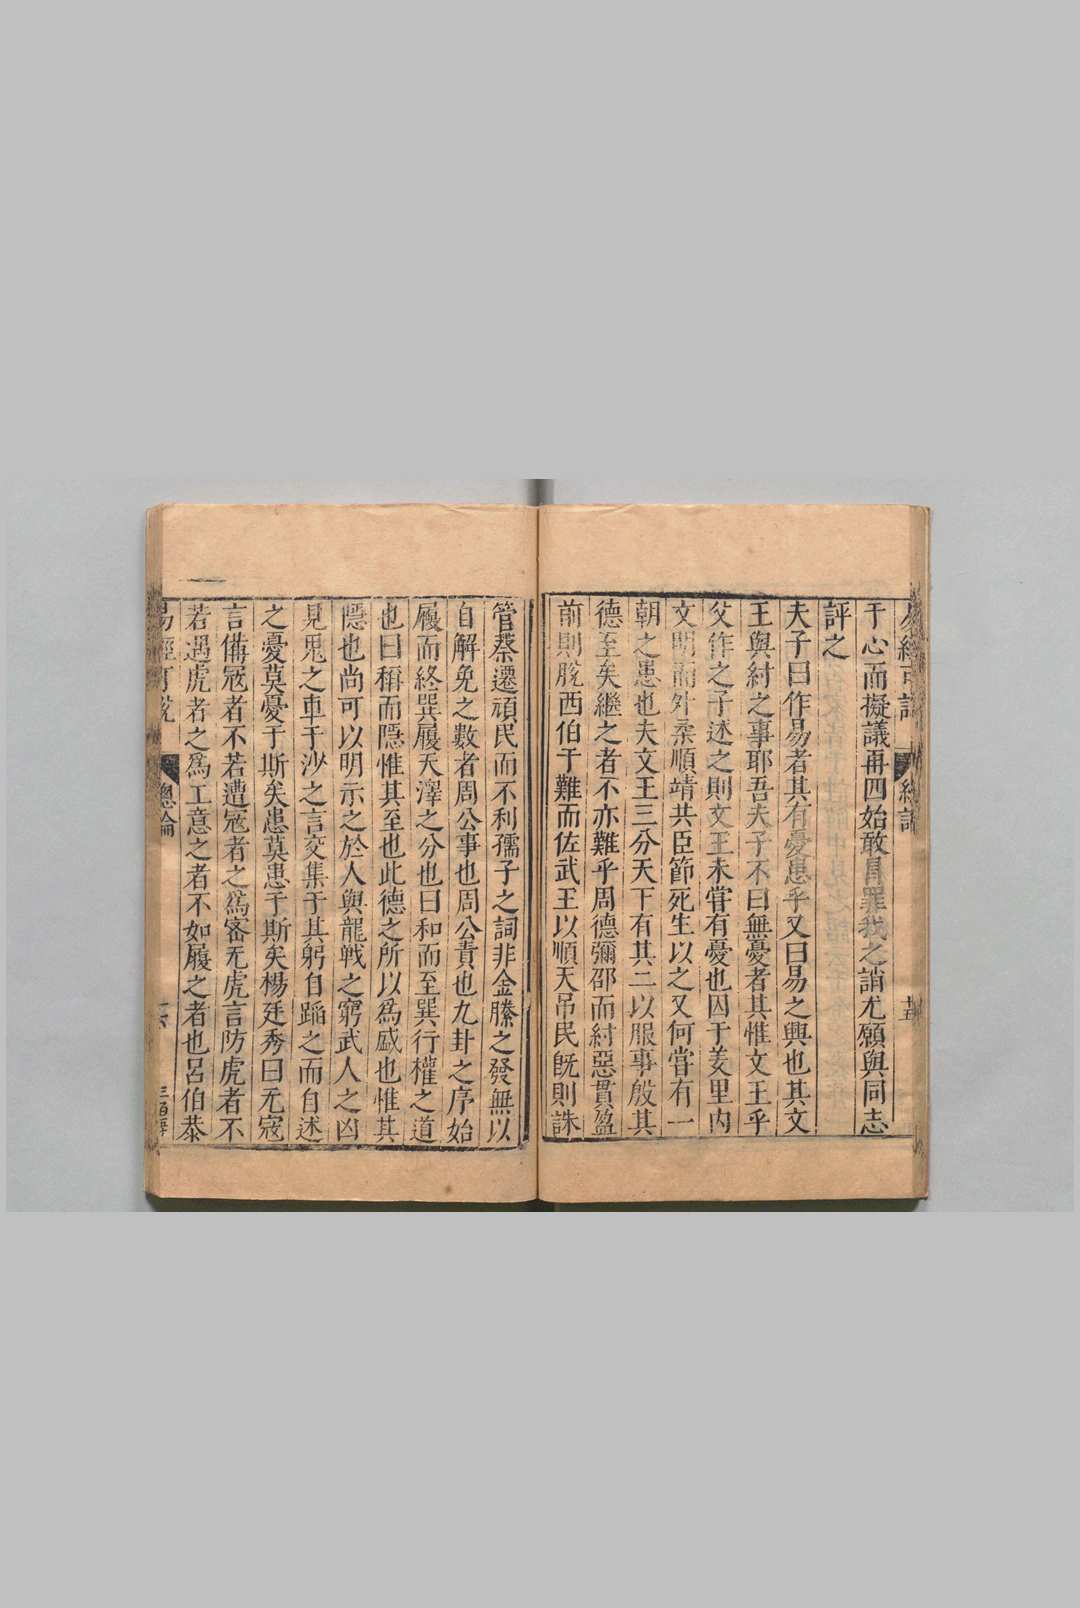 于心而擬議再四始敢冒罪我之誚尤願與同志
評之
夫子曰作易者其有憂患乎又曰易之興也其文
王與紂之事耶吾夫子不曰無憂者其惟文王乎
父作之子述之則文王未甞有憂也囚于羑里内
文明而外柔順靖共臣節死生以之又何甞有一
朝之患也夫文王三分天下有其二以服事殷其
德至矣繼之者不亦難乎周德彌邵而紂惡貫盈
前則脫西伯于難而佐武王以順天吊民旣則誅
管蔡遷頑民而不利孺子之詞非金縢之發無以
自解免之數者周公事也周公責也九卦之序始
履而終巽履天澤之分也曰和而至巽行權之道
也曰稱而隱惟其至也此德之所以爲盛也惟其
隱也尚可以明示之於人與龍戰之窮武人之凶
見鬼之車于沙之言交集于其躬自蹈之而自述
之憂莫憂于斯矣患莫患于斯矣楊廷秀曰无寇
言備寇者不若遭寇者之爲密无虎言防虎者不
若遇虎者之爲工意之者不如履之者也呂伯恭
易經可說
總論